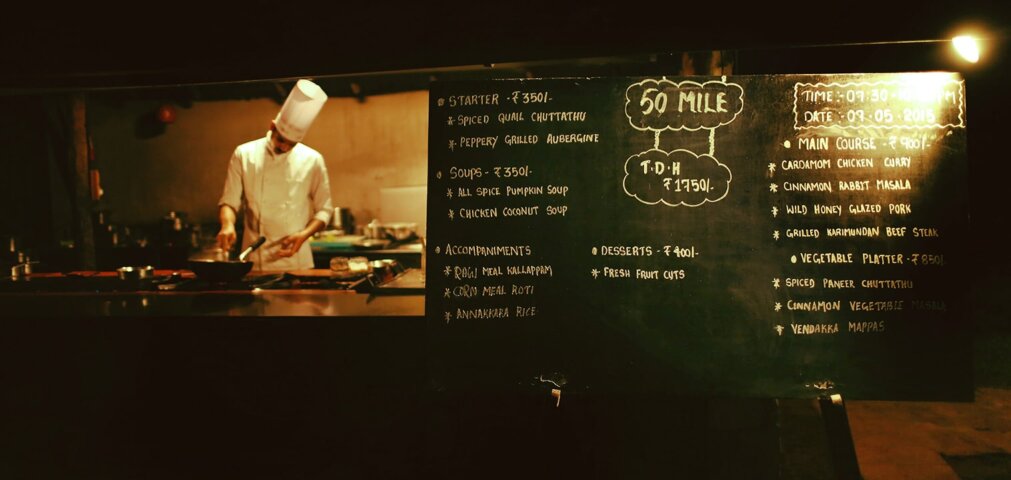 STARTER - ₹350/-
* SPICED QUAIL CHUTTATHU
* PEPPERY GRILLED AUBERGINE
SOUPS - ₹350/-
* ALL SPICE PUMPKIN SOUP
* CHICKEN COCONUT SOUP
ACCOMPANIMENTS
* RAGI MEAL KALLAPPAM
* CORN MEAL ROTI
* ANNAKKARA RICE
50 MILE
T.D.H
₹1750/-
DESSERTS - ₹400/-
* FRESH FRUIT CUTS
TIME :- 07:30
DATE :- 09.05 2015
MAIN COURSE - ₹900/-
* CARDAMOM CHICKEN CURRY
* CINNAMON RABBIT MASALA
* WILD HONEY GLAZED PORK
* GRILLED KARIMUNDAN BEEF STEAK
VEGETABLE PLATTER - ₹850/-
* SPICED PANEER CHUTTATHU
* CINNAMON VEGETABLE MASALA
* VENDAKKA MAPPAS